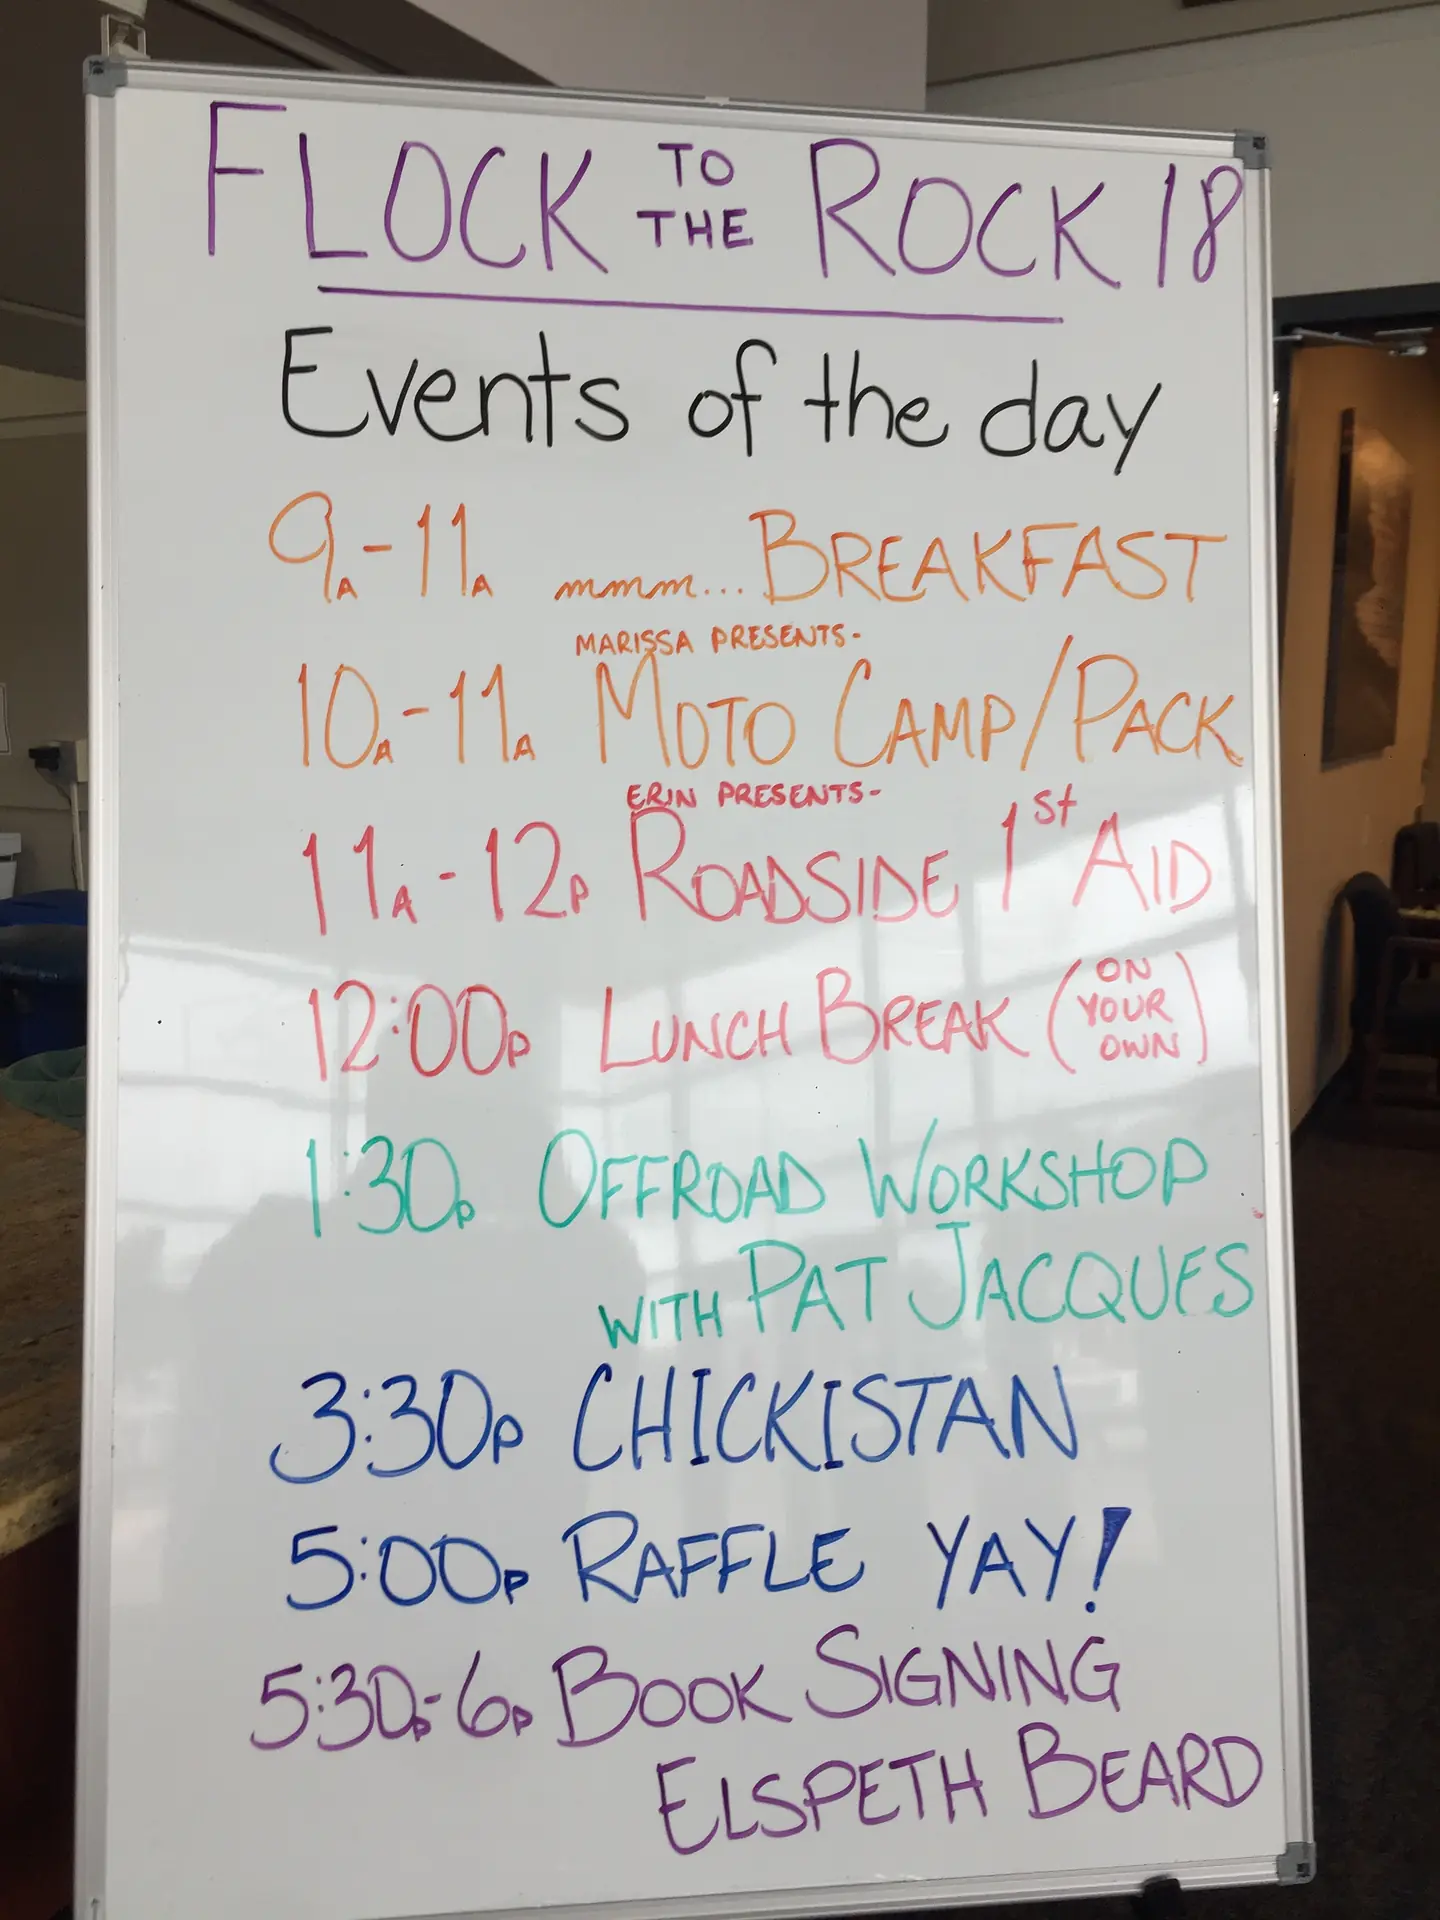 FLOCK TO THE ROCK 18
Events of the day
9A-11A mmm... BREAKFAST
MARISSA PRESENTS-
10A-11A MOTO CAMP/PACK
ERIN PRESENTS-
11A-12P ROADSIDE 1st AID
12:00P LUNCH BREAK (ON YOUR OWN)
1:30P OFFROAD WORKSHOP
WITH PAT JACQUES
3:30P CHICKISTAN
5:00P RAFFLE YAY!
5:30P-6P BOOK SIGNING
ELSPETH BEARD